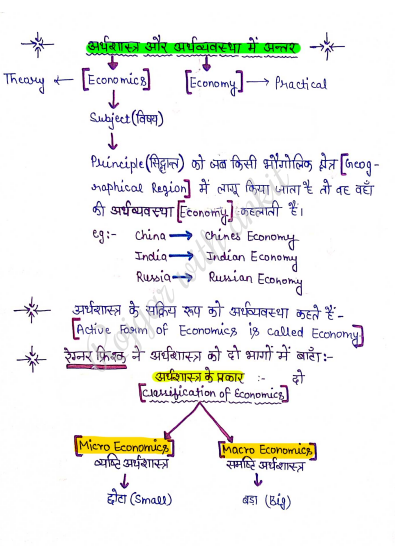 अर्थशास्त्र और अर्थव्यवस्था में अन्तर
Theory ← [Economics] [Economy] → Practical
Subject (विषय)
Principle (सिद्धान्त) को जब किसी भौगोलिक क्षेत्र [Geog-
raphical Region] में लागू किया जाता है तो वह वहाँ
की अर्थव्यवस्था [Economy] कहलाती है।
eg:- China → Chines Economy
India → Indian Economy
Russia → Russian Economy
अर्थशास्त्र के सक्रिय रूप को अर्थव्यवस्था कहते हैं-
[Active Form of Economics is called Economy]
रैग्नर फ्रिश्क ने अर्थशास्त्र को दो भागों में बाँटा:-
अर्थशास्त्र के प्रकार :- दो
[Classification of Economics]
[Micro Economics] [Macro Economics]
व्यष्टि अर्थशास्त्र समष्टि अर्थशास्त्र
छोटा (Small) बड़ा (Big)